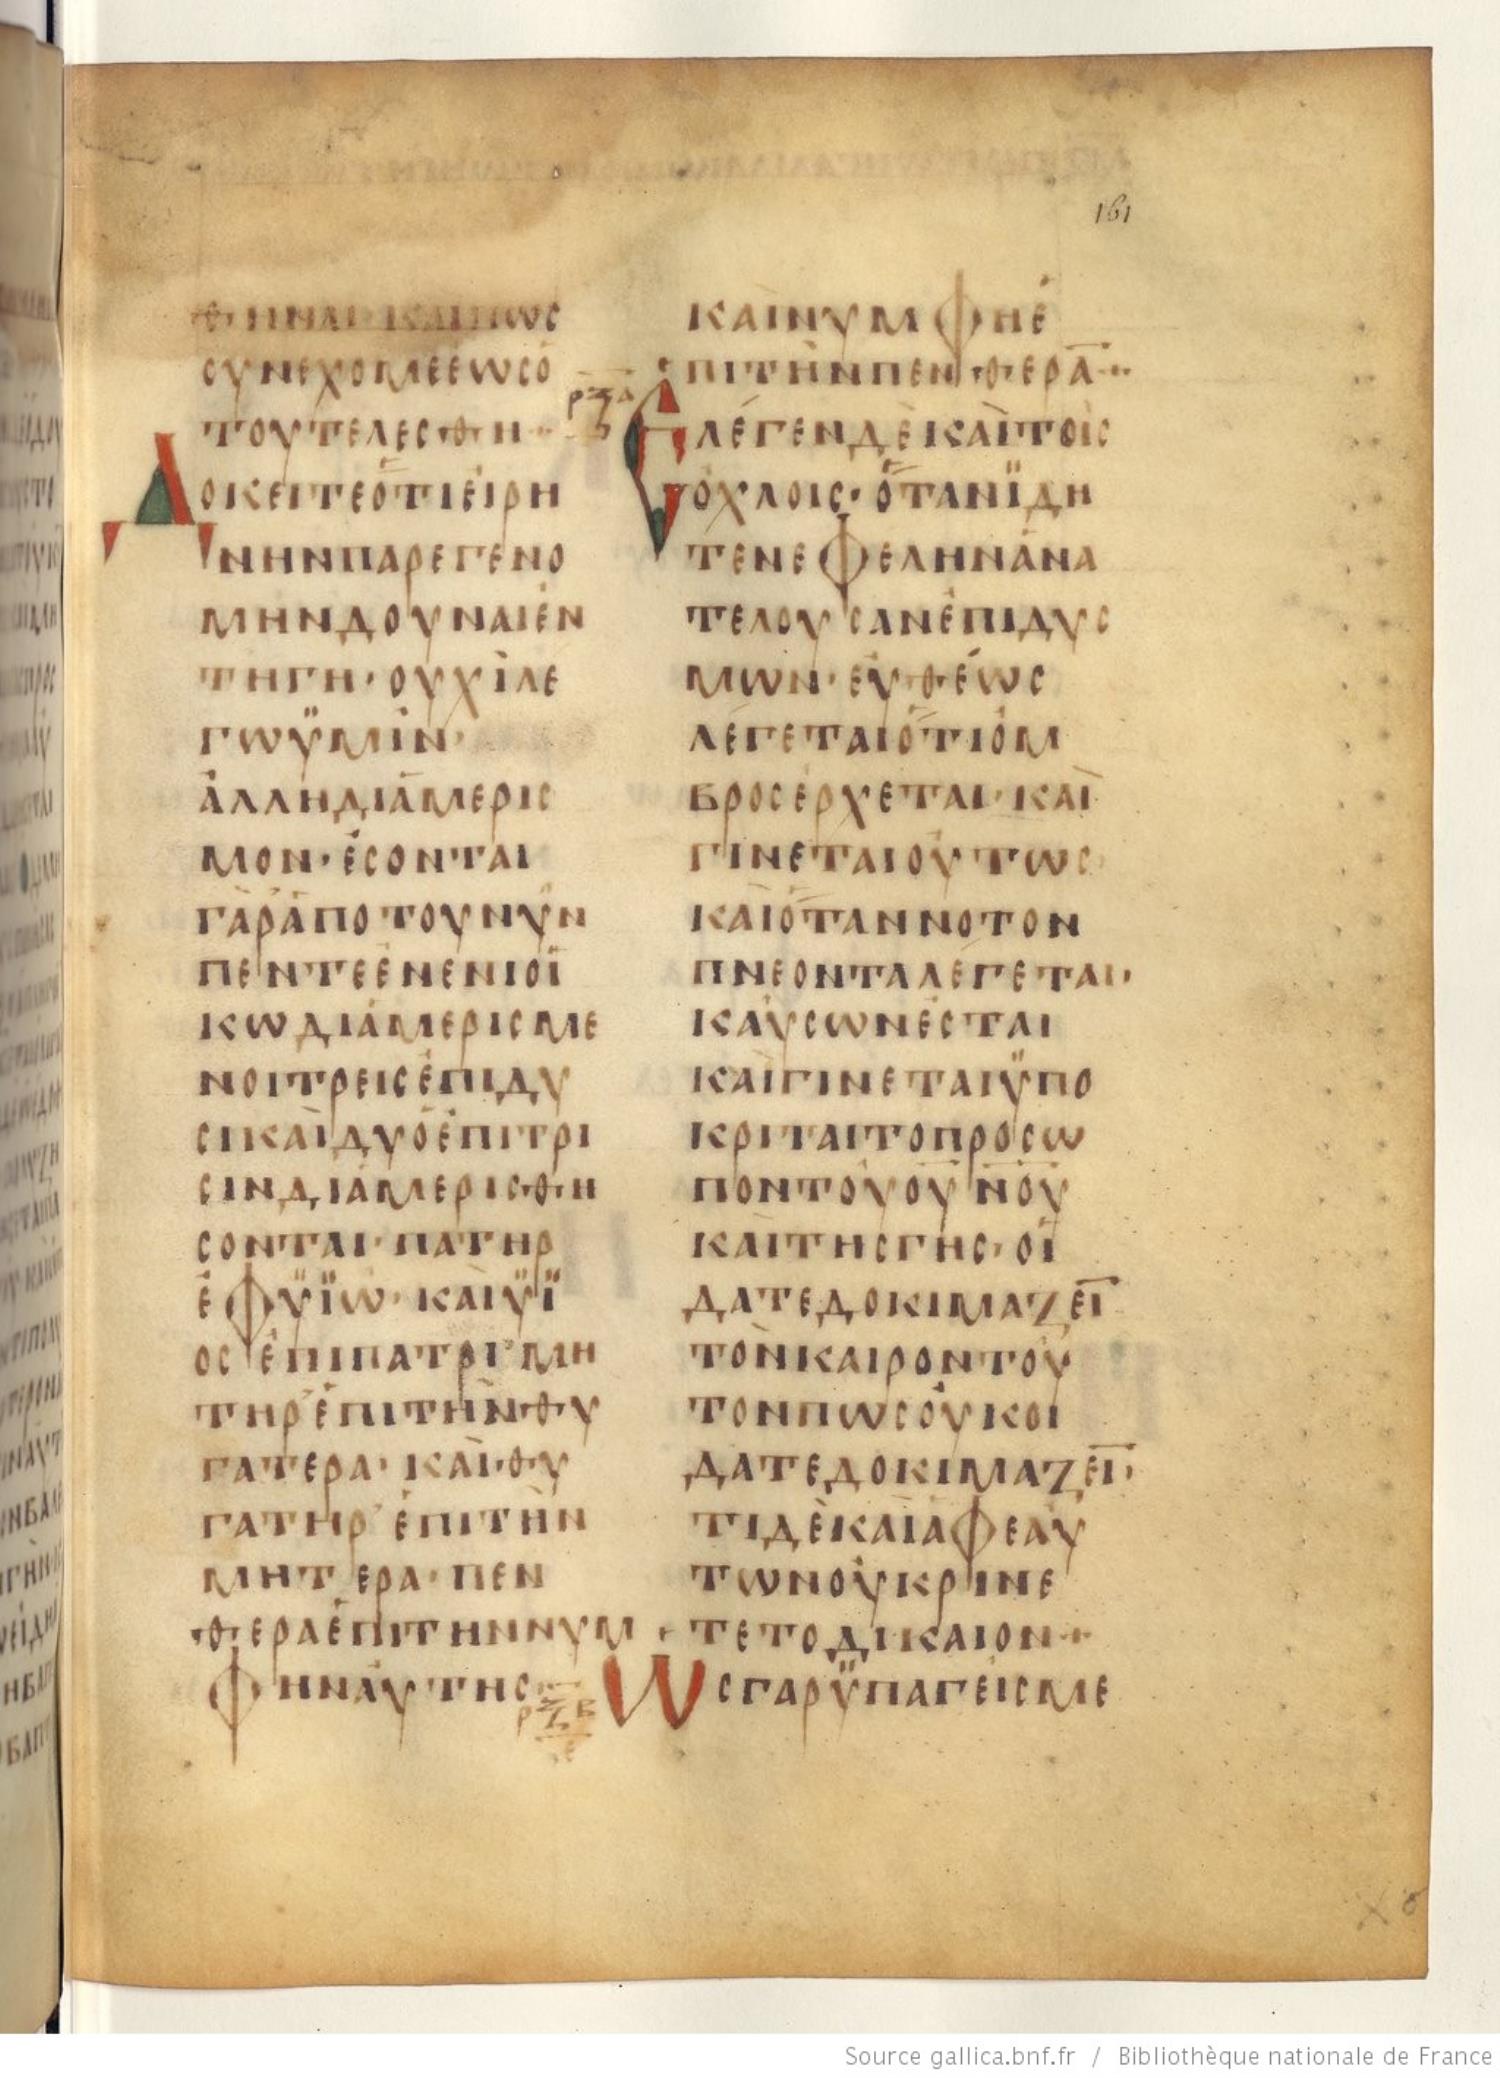 161
θΗΝΑΙ· ΚΑΙ ΠΩC
CΥΝΕΧΟΜΕ ΕΩCΟ
ΤΟΥ ΤΕΛΕCΘΗ··
ΔΟΚΕΙΤΕ ΟΤΙ ΕΙΡΗ
ΝΗΝ ΠΑΡΕΓΕΝΟ
ΜΗΝ ΔΟΥΝΑΙ ΕΝ
ΤΗ ΓΗ· ΟΥΧΙ ΛΕ
ΓΩ ΫΜΙΝ·
ΑΛΛ Η ΔΙΑΜΕΡΙC
ΜΟΝ· ΕCΟΝΤΑΙ
ΓΑΡ ΑΠΟ ΤΟΥ ΝΥΝ
ΠΕΝΤΕ ΕΝ ΕΝΙ ΟΙ
ΚΩ ΔΙΑΜΕΡΙCΜΕ
ΝΟΙ ΤΡΕΙC ΕΠΙ ΔΥ
CΙ ΚΑΙ ΔΥΟ ΕΠΙ ΤΡΙ
CΙΝ ΔΙΑΜΕΡΙCΘΗ
CΟΝΤΑΙ· ΠΑΤΗΡ
ΕΦ ΫΪΩ· ΚΑΙ ΫΪ
ΟC ΕΠΙ ΠΑΤΡΙ· ΜΗ
ΤΗΡ ΕΠΙ ΤΗΝ ΘΥ
ΓΑΤΕΡΑ· ΚΑΙ ΘΥ
ΓΑΤΗΡ ΕΠΙ ΤΗΝ
ΜΗΤΕΡΑ· ΠΕΝ
ΘΕΡΑ ΕΠΙ ΤΗΝ ΝΥΜ
ΦΗΝ ΑΥΤΗC··
ΡΞΒ
Ε
ΚΑΙ ΝΥΜΦΗ Ε
ΠΙ ΤΗΝ ΠΕΝΘΕΡΑ̅··
ΡΞΑ
ΕΛΕΓΕΝ ΔΕ ΚΑΙ ΤΟΙC
ΟΧΛΟΙC· ΟΤΑΝ ΪΔΗ
ΤΕ ΝΕΦΕΛΗΝ ΑΝΑ
ΤΕΛΟΥCΑΝ ΕΠΙ ΔΥC
ΜΩΝ· ΕΥΘΕΩC
ΛΕΓΕΤΑΙ ΟΤΙ ΟΜ
ΒΡΟC ΕΡΧΕΤΑΙ· ΚΑΙ
ΓΙΝΕΤΑΙ ΟΥΤΩC
ΚΑΙ ΟΤΑΝ ΝΟΤΟΝ
ΠΝΕΟΝΤΑ ΛΕΓΕΤΑΙ·
ΚΑΥCΩΝ ΕCΤΑΙ
ΚΑΙ ΓΙΝΕΤΑΙ ΫΠΟ
ΚΡΙΤΑΙ ΤΟ ΠΡΟCΩ
ΠΟΝ ΤΟΥ Ο̅Υ̅Ν̅Ο̅Υ̅
ΚΑΙ ΤΗC ΓΗC· ΟΙ
ΔΑΤΕ ΔΟΚΙΜΑΖΕΙ̅
ΤΟΝ ΚΑΙΡΟΝ ΤΟΥ
ΤΟΝ ΠΩC ΟΥΚ ΟΙ
ΔΑΤΕ ΔΟΚΙΜΑΖΕΙ̅·
ΤΙ ΔΕ ΚΑΙ ΑΦ ΕΑΥ
ΤΩΝ ΟΥ ΚΡΙΝΕ
ΤΕ ΤΟ ΔΙΚΑΙΟΝ··
ΩC ΓΑΡ ΫΠΑΓΕΙC ΜΕ
Source gallica.bnf.fr / Bibliothèque nationale de France